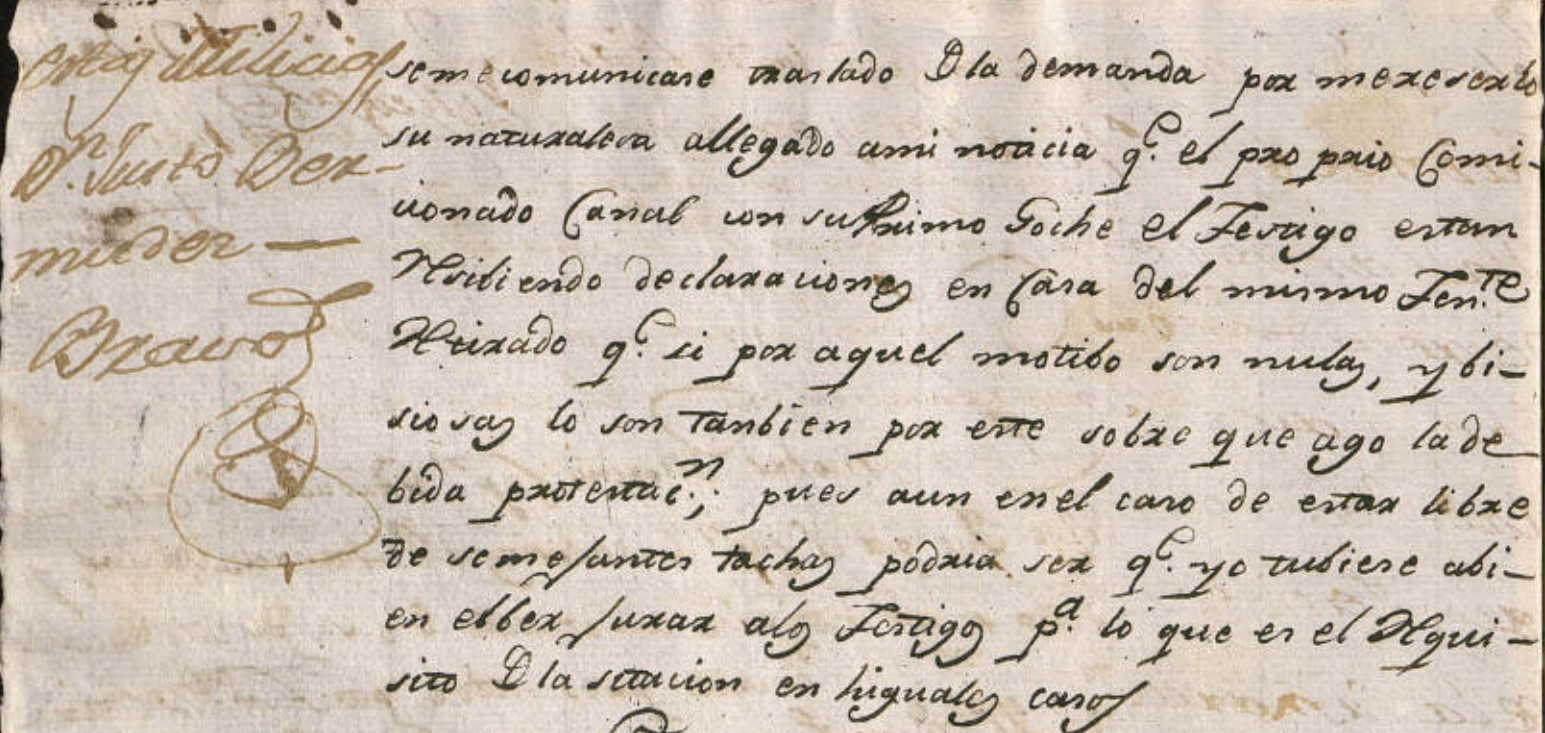 estas Milicias
Dn. Justo Ber-
mudez —
Bravo
se me comunicase traslado De la demanda por mereserlo
su naturalesa allegado ami noticia q.e el propio Comi-
cionado Canal con su Primo Goche el Testigo estan
Resibiendo declaraciones en Casa del mismo Ten.te
Retirado q.e si por aquel motibo son nulas, y bi-
siosas lo son tanbien por este sobre que ago la de
bida protestac.n; pues aun en el caso de estar libre
de semejantes tachas podria ser q.e yo tubiese abi-
en el ber jurar alos Testigos p.a lo que es el Requi-
sito De la sitacion en higuales casos